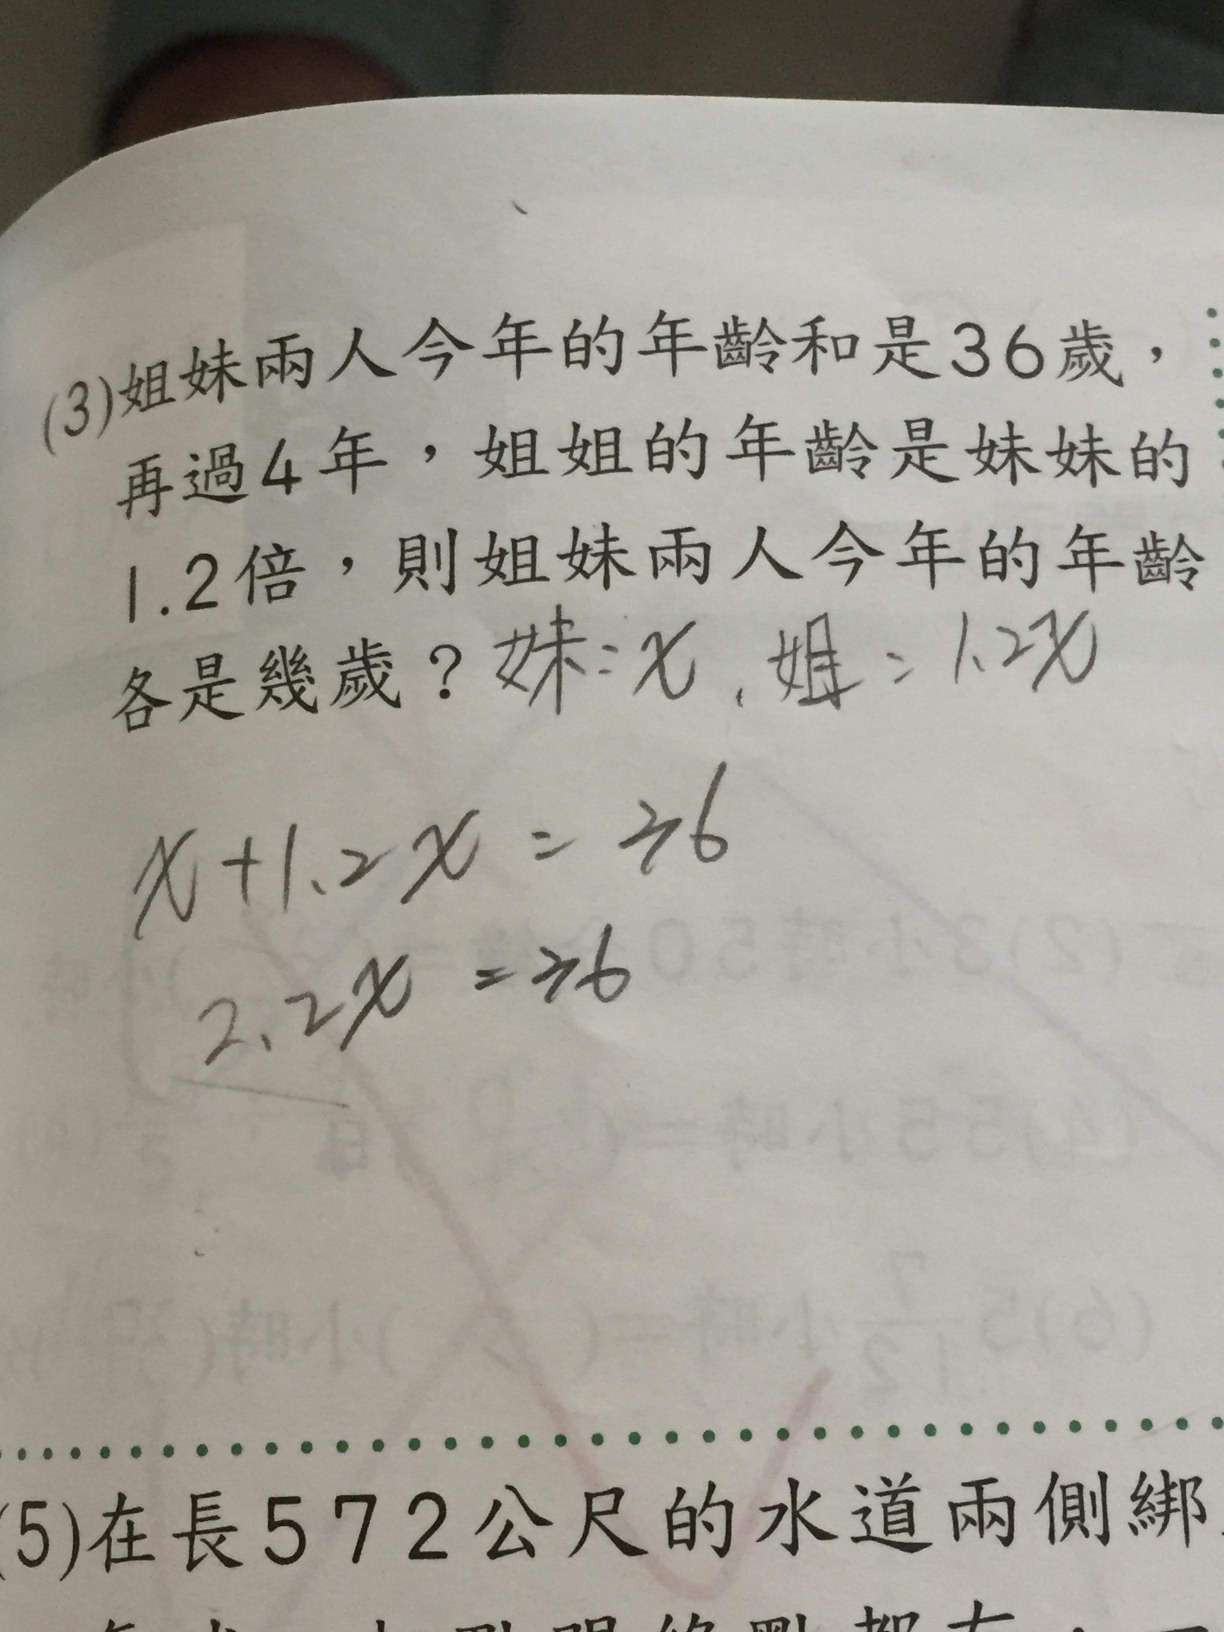 (3)姐妹兩人今年的年齡和是36歲，
再過4年，姐姐的年齡是妹妹的
1.2倍，則姐妹兩人今年的年齡
各是幾歲？妹：x、姐：1.2x
x+1.2x=36
2.2x=36
(5)在長572公尺的水道兩側綁